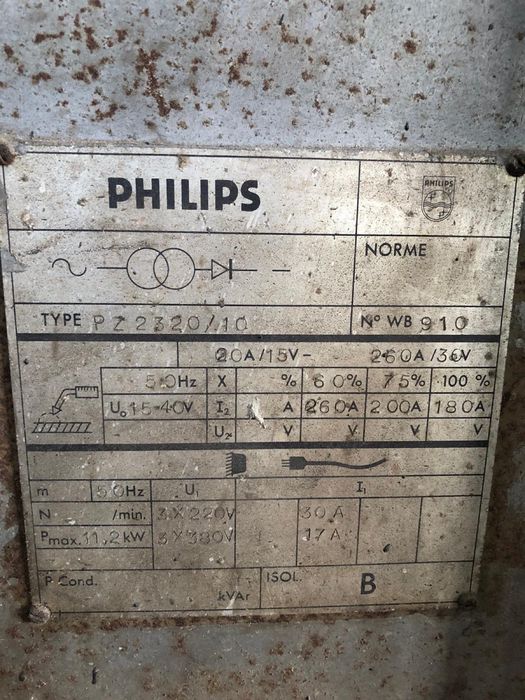 PHILIPS
PHILIPS
NORME
TYPE PZ 2320/10 Nº WB 910
20A/15V- 260A/36V
50Hz X % 60% 75% 100%
U₀ 15-40V I₂ A 260A 200A 180A
U₂ V V V V
m 50Hz U₁ I₁
N /min. 3X220V 30A
Pmax. 11,2kW 3X380V 17A
P Cond. kVAr ISOL. B